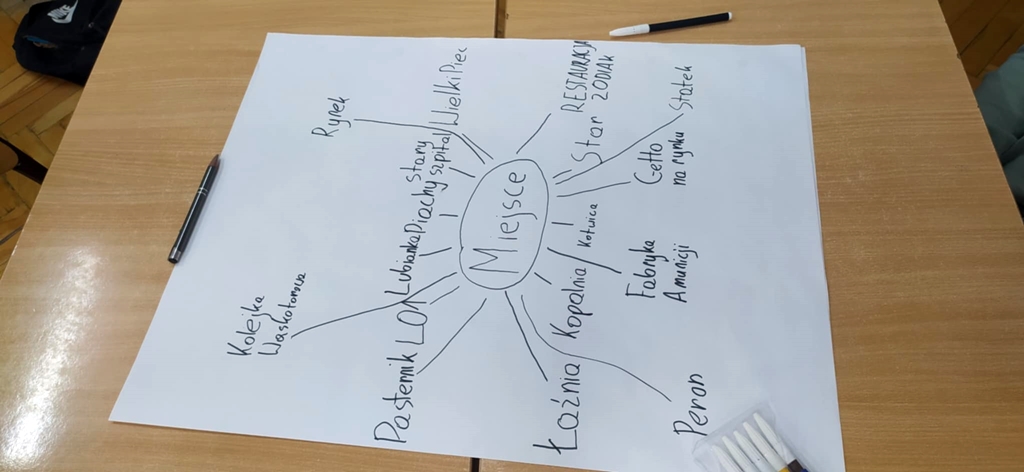 Miejsce
Rynek
Wielki Piec
Stary
szpital
Piachy
Lubianka
LO1
Kolejka
Wąskotorowa
Pastennik
RESTAURACJA
ZODIAK
Star
Statek
Getto
na rynku
Kotwica
Fabryka
Amunicji
Kopalnia
Łaźnia
Peron